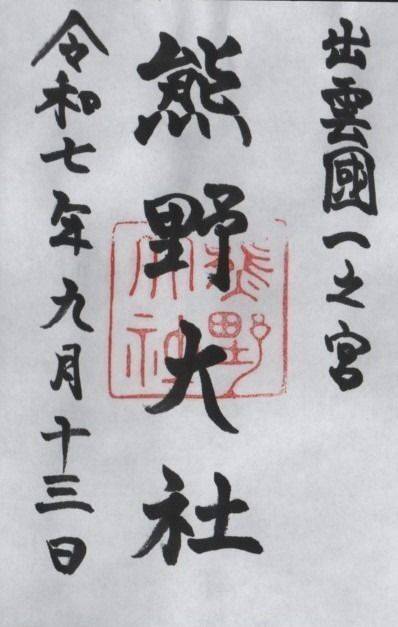 出雲國一之宮
熊野大社
令和七年九月十三日
熊野大社